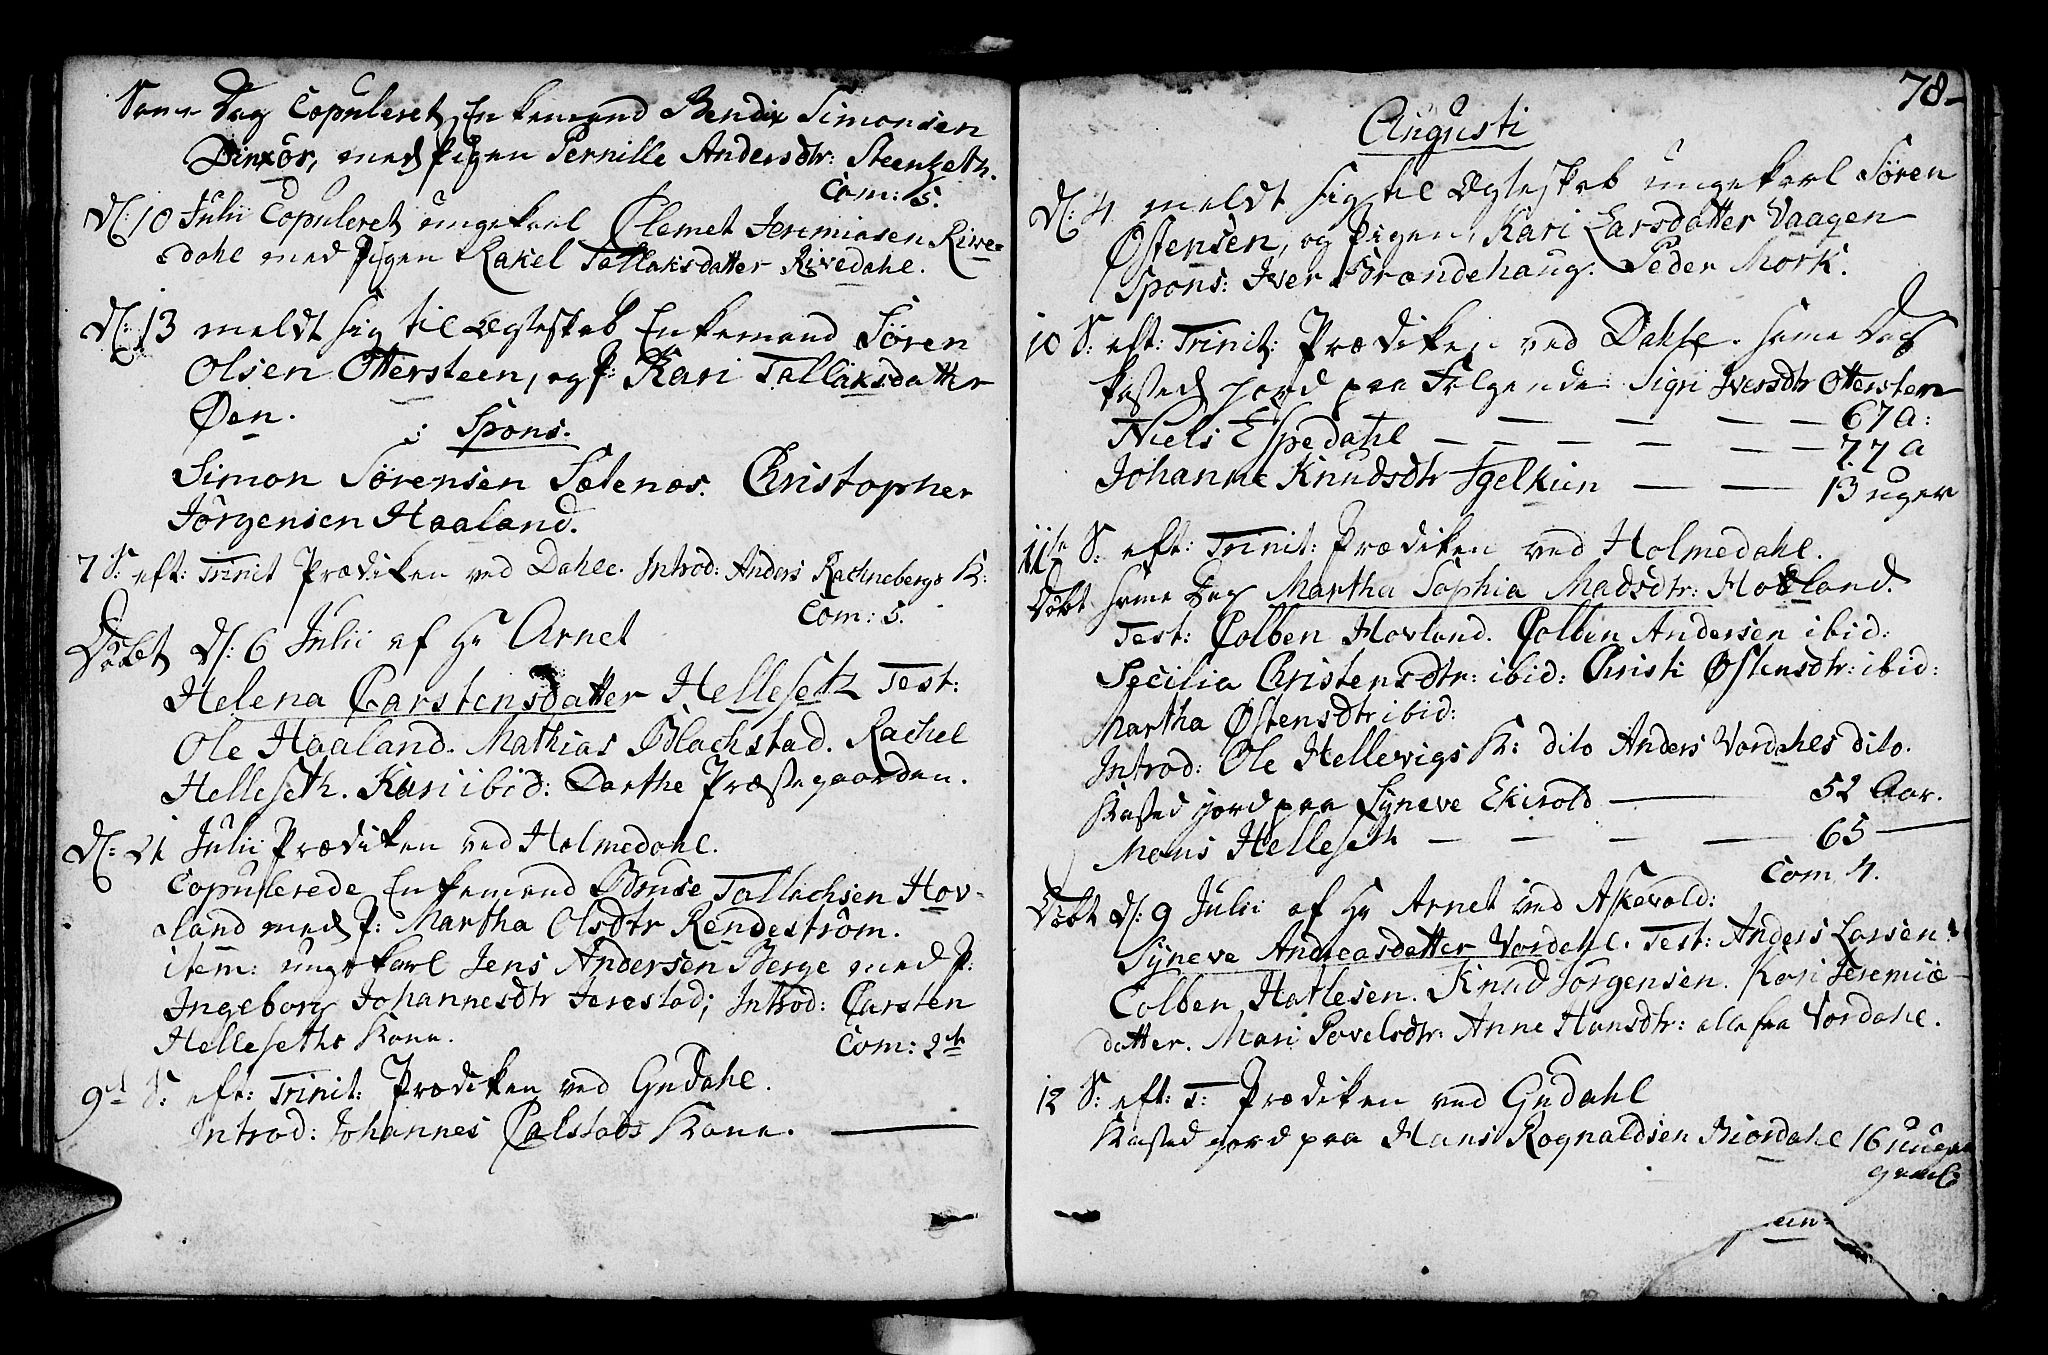 Same Dag Copuleret Enkemand Bendix Simonsen
Dinxør, med Pigen Pernille Andersdtr: Steenseth.
Com: 5.
D: 10 Julii Copuleret ungekarl Clemet Jeremiasen Rive-
dahl med Pigen Rakel Tallaksdatter Rivedahl.
D: 13 meldt sig til Ægteskab Enkemand Søren
Olsen Ottersteen, og P: Kari Tallaksdatter
Øen. : Spons.
Simon Sørensen Sætenæs. Christopher
Jørgensen Haaland.
7 S: eft: Trinit Prædiken ved Dahle. Introd: Anders Rachnebergs K:
Com: 5.
Døbt D: 6 Julii af Hr Arnet
Helena Carstensdatter Helleseth Test:
Ole Haaland. Mathias Blachstad. Rachel
Helleseth. Kari ibid: Darthe Præstegaarden.
D: 21 Julii Prædiken ved Holmedahl.
Copulerede Enkemand Bruse Tallachsen Hov-
land med P: Martha Olsdtr Rendestrøm.
item: ungekarl Jens Andersen Berge med P:
Ingeborg Johannesdtr Jerestad; Introd: Carsten
Helleseths Kone.
Com: 2
9d S: eft: Trinit: Prædiken ved Gudahl.
Introd: Johannes Calstads Kone.
78-
Augusti
D: 4 meldt sig til Ægteskab ungekarl Søren
Østensen, og Pigen, Kari Larsdatter Vaagen
Spons: Iver Brændehaug. Peder Mork.
10 S: eft: Trinit: Prædiken ved Dahle. same Dag
kasted jord paa Følgende: Sigri Iversdtr Ottersten
67 a:
Niels Espedahl 77 a
Johanne Knudsdtr Igelkiin 13 uger
11te S: eft: Trinit: Prædiken ved Holmedahl.
Døbt same Dag Martha Sophia Madsdtr: Hovland.
Test: Colben Hovland. Colben Andersen ibid:
Sicilia Christensdtr: ibid: Christi Østensdtr: ibid:
Martha Østensdtr ibid:
Introd: Ole Hellevigs K: dito Anders Vardahls dito.
Kasted jord paa Syneve Ekivold 52 Aar.
Mons Helleseth 65
Com 4.
Døbt D: 9 Julii af Hr Arnet ved Askevold:
Syneve Andreasdatter Vardahl. Test: Anders Larsen:
Colben Hatlesen. Knud Jørgensen. Kari Jeremiæ
datter. Mari Povelsdtr: Anne Hansdtr: alle fra Vardahl.
12 S: eft: T: Prædiken ved Gudahl
Kasted jord paa Hans Rognaldsen Biordahl 16 uger